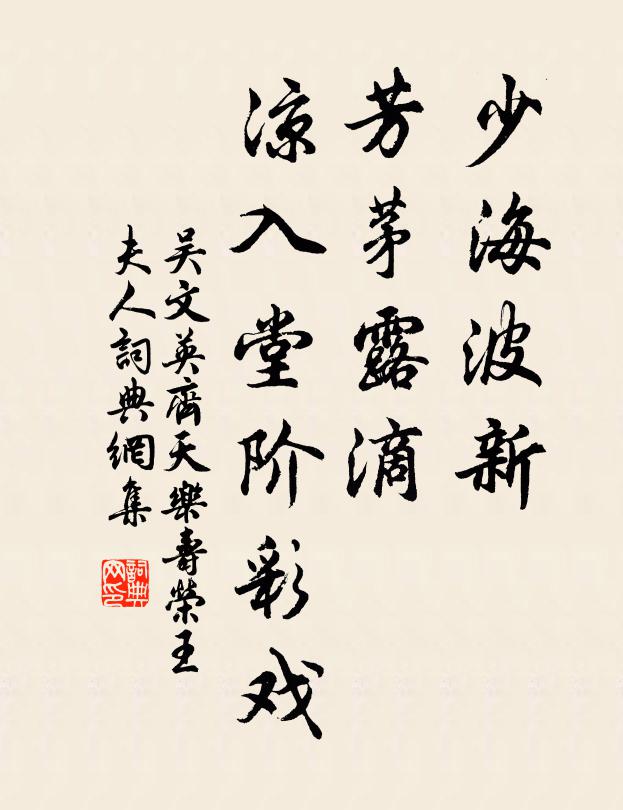 少海波新
芳茅露滴
凉入堂阶彩戏
吴文英齊天樂壽榮王
夫人詞典網集
詞典网印